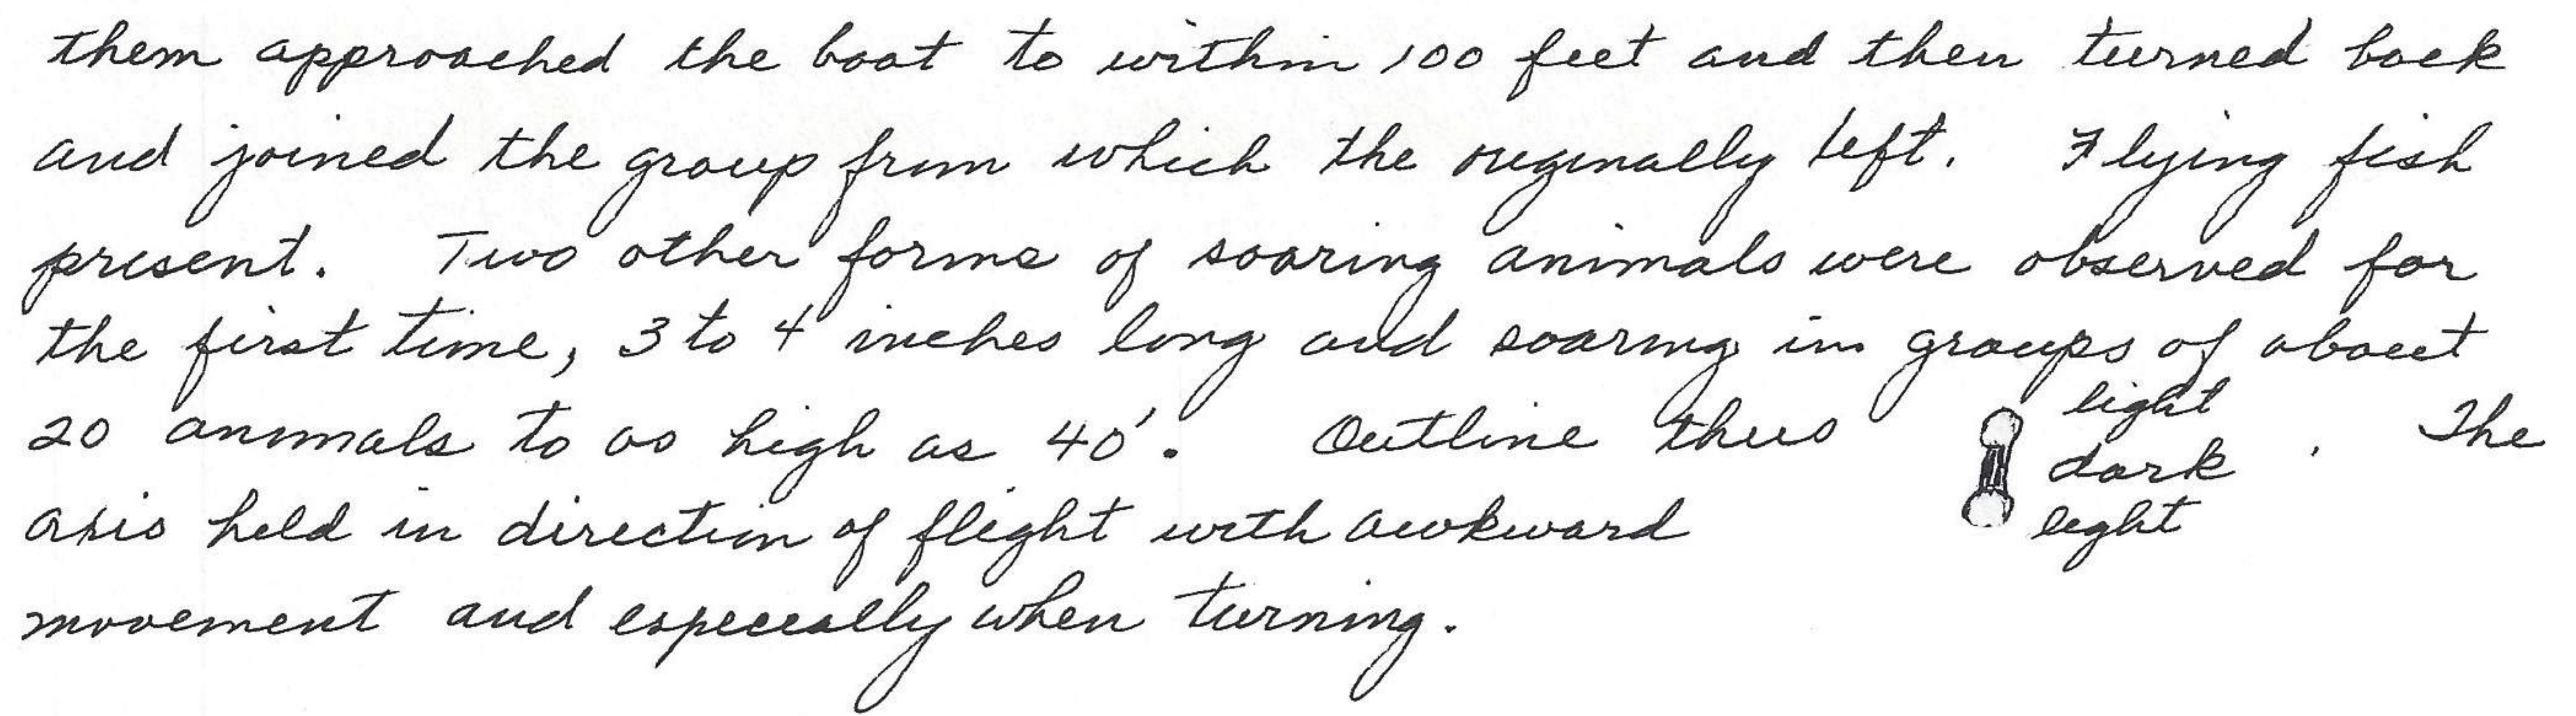 them approached the boat to within 100 feet and then turned back
and joined the group from which the originally left. Flying fish
present. Two other forms of soaring animals were observed for
the first time, 3 to 4 inches long and soaring in groups of about
20 animals to as high as 40'. Outline thus light . The
dark
axis held in direction of flight with awkward light
movement and especially when turning.